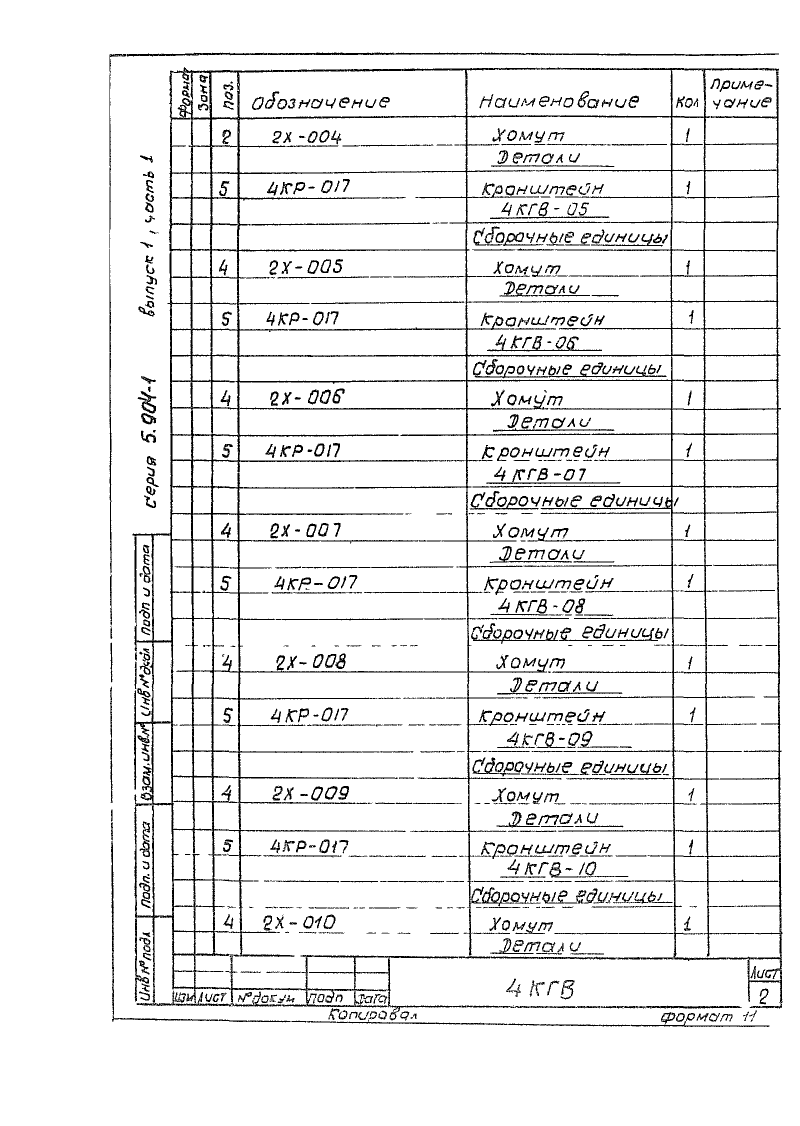 Серия 5.904-1 выпуск 1, часть 1
Формат Зона поз. Обозначение Наименование Кол Примечание
2 2Х-004 Хомут 1
Детали
5 4КР-017 Кронштейн 1
4КГВ-05
Сборочные единицы
4 2Х-005 Хомут 1
Детали
5 4КР-017 Кронштейн 1
4КГВ-06
Сборочные единицы
4 2Х-006 Хомут 1
Детали
5 4КР-017 Кронштейн 1
4КГВ-07
Сборочные единицы
4 2Х-007 Хомут 1
Детали
5 4КР-017 Кронштейн 1
4КГВ-08
Сборочные единицы
4 2Х-008 Хомут 1
Детали
5 4КР-017 Кронштейн 1
4КГВ-09
Сборочные единицы
4 2Х-009 Хомут 1
Детали
5 4КР-017 Кронштейн 1
4КГВ-10
Сборочные единицы
4 2Х-010 Хомут 1
Детали
Подп и дата
Инв № дубл
Взам. инв. №
Подп. и дата
Инв № подл
Изм Лист № докум Подп Дата
4КГВ
Лист
2
Копировал формат 11